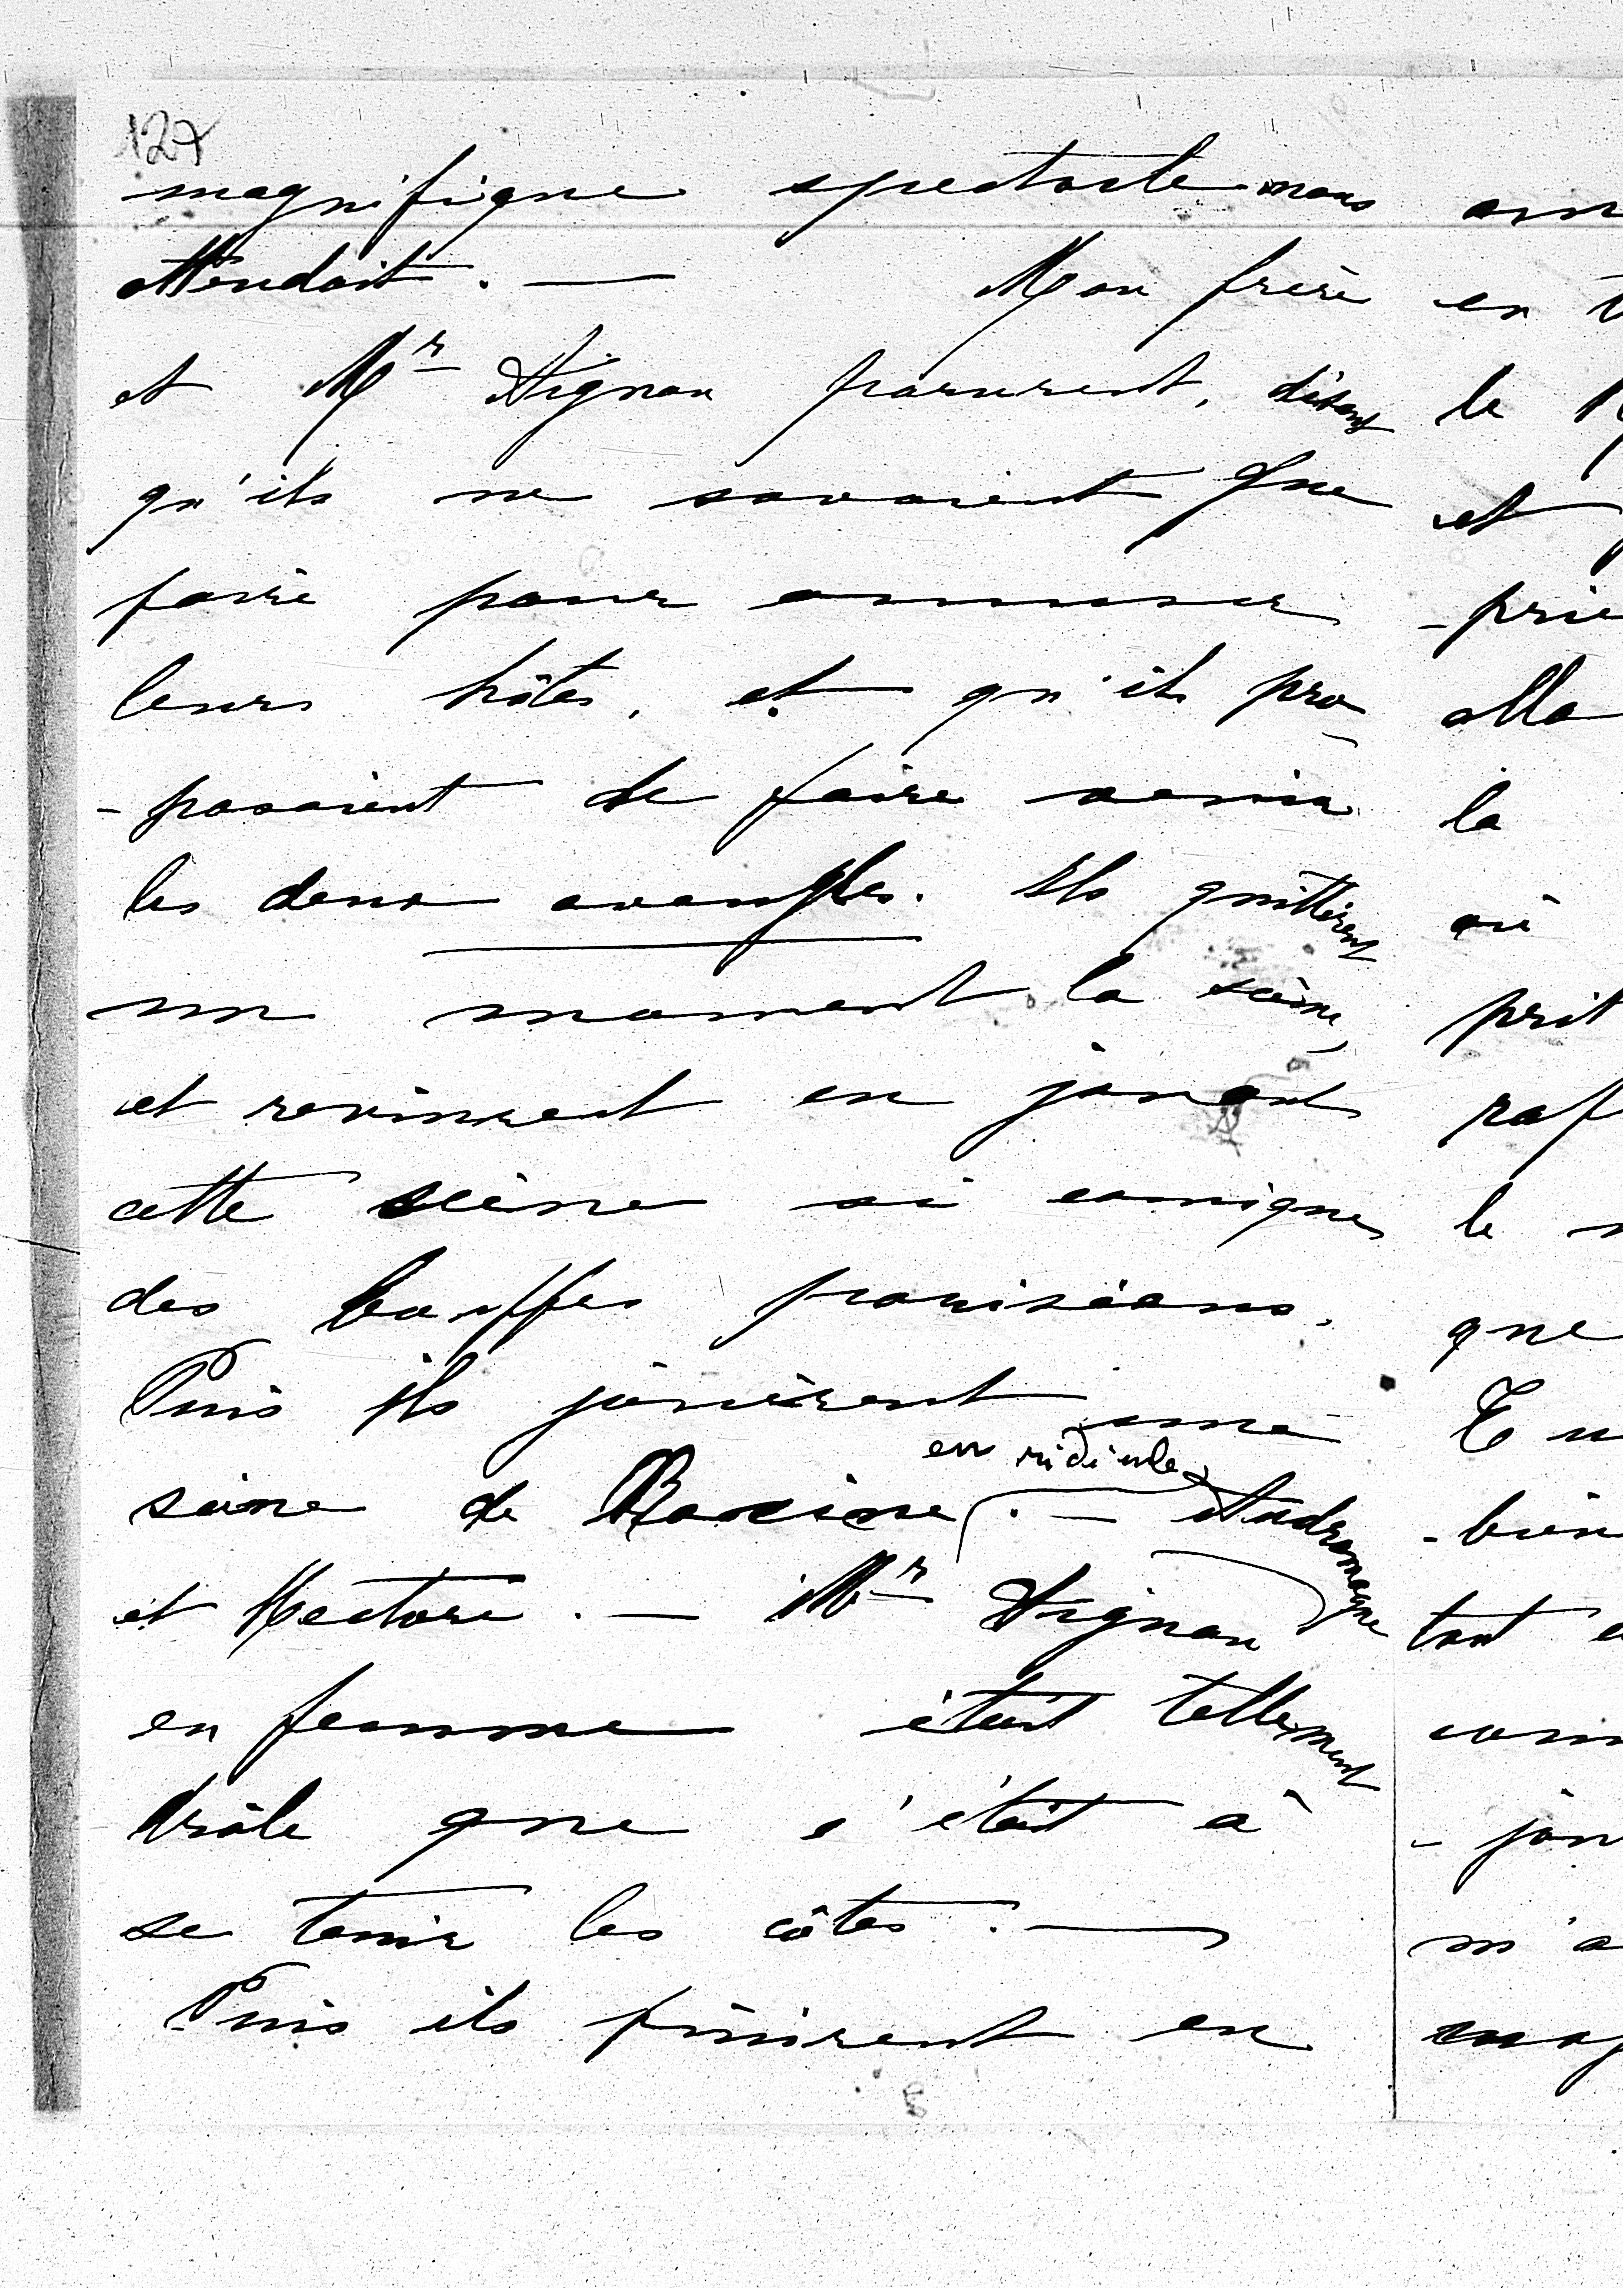 127
magnifique spectacle nous
attendait. —     Mon frère
et Mr Aignan parurent, disant
qu'ils ne savaient que
faire pour amuser
leurs hôtes, et qu'ils pro-
-posaient de faire venir
les deux aveugles. Ils quittèrent
un moment la scène,
et revinrent en jouant
cette scène si comique
des bouffes parisiens.
Puis ils jouèrent une
en ridicule
scène de Racine. — Andromaque
et Hector. — Mr Aignan
en femme était tellement
drôle que c'était à
se tenir les côtes. —
Puis ils finirent en
en
le
et
-prie
alla
la
où
prit
le
que
-bien
tout
m'a